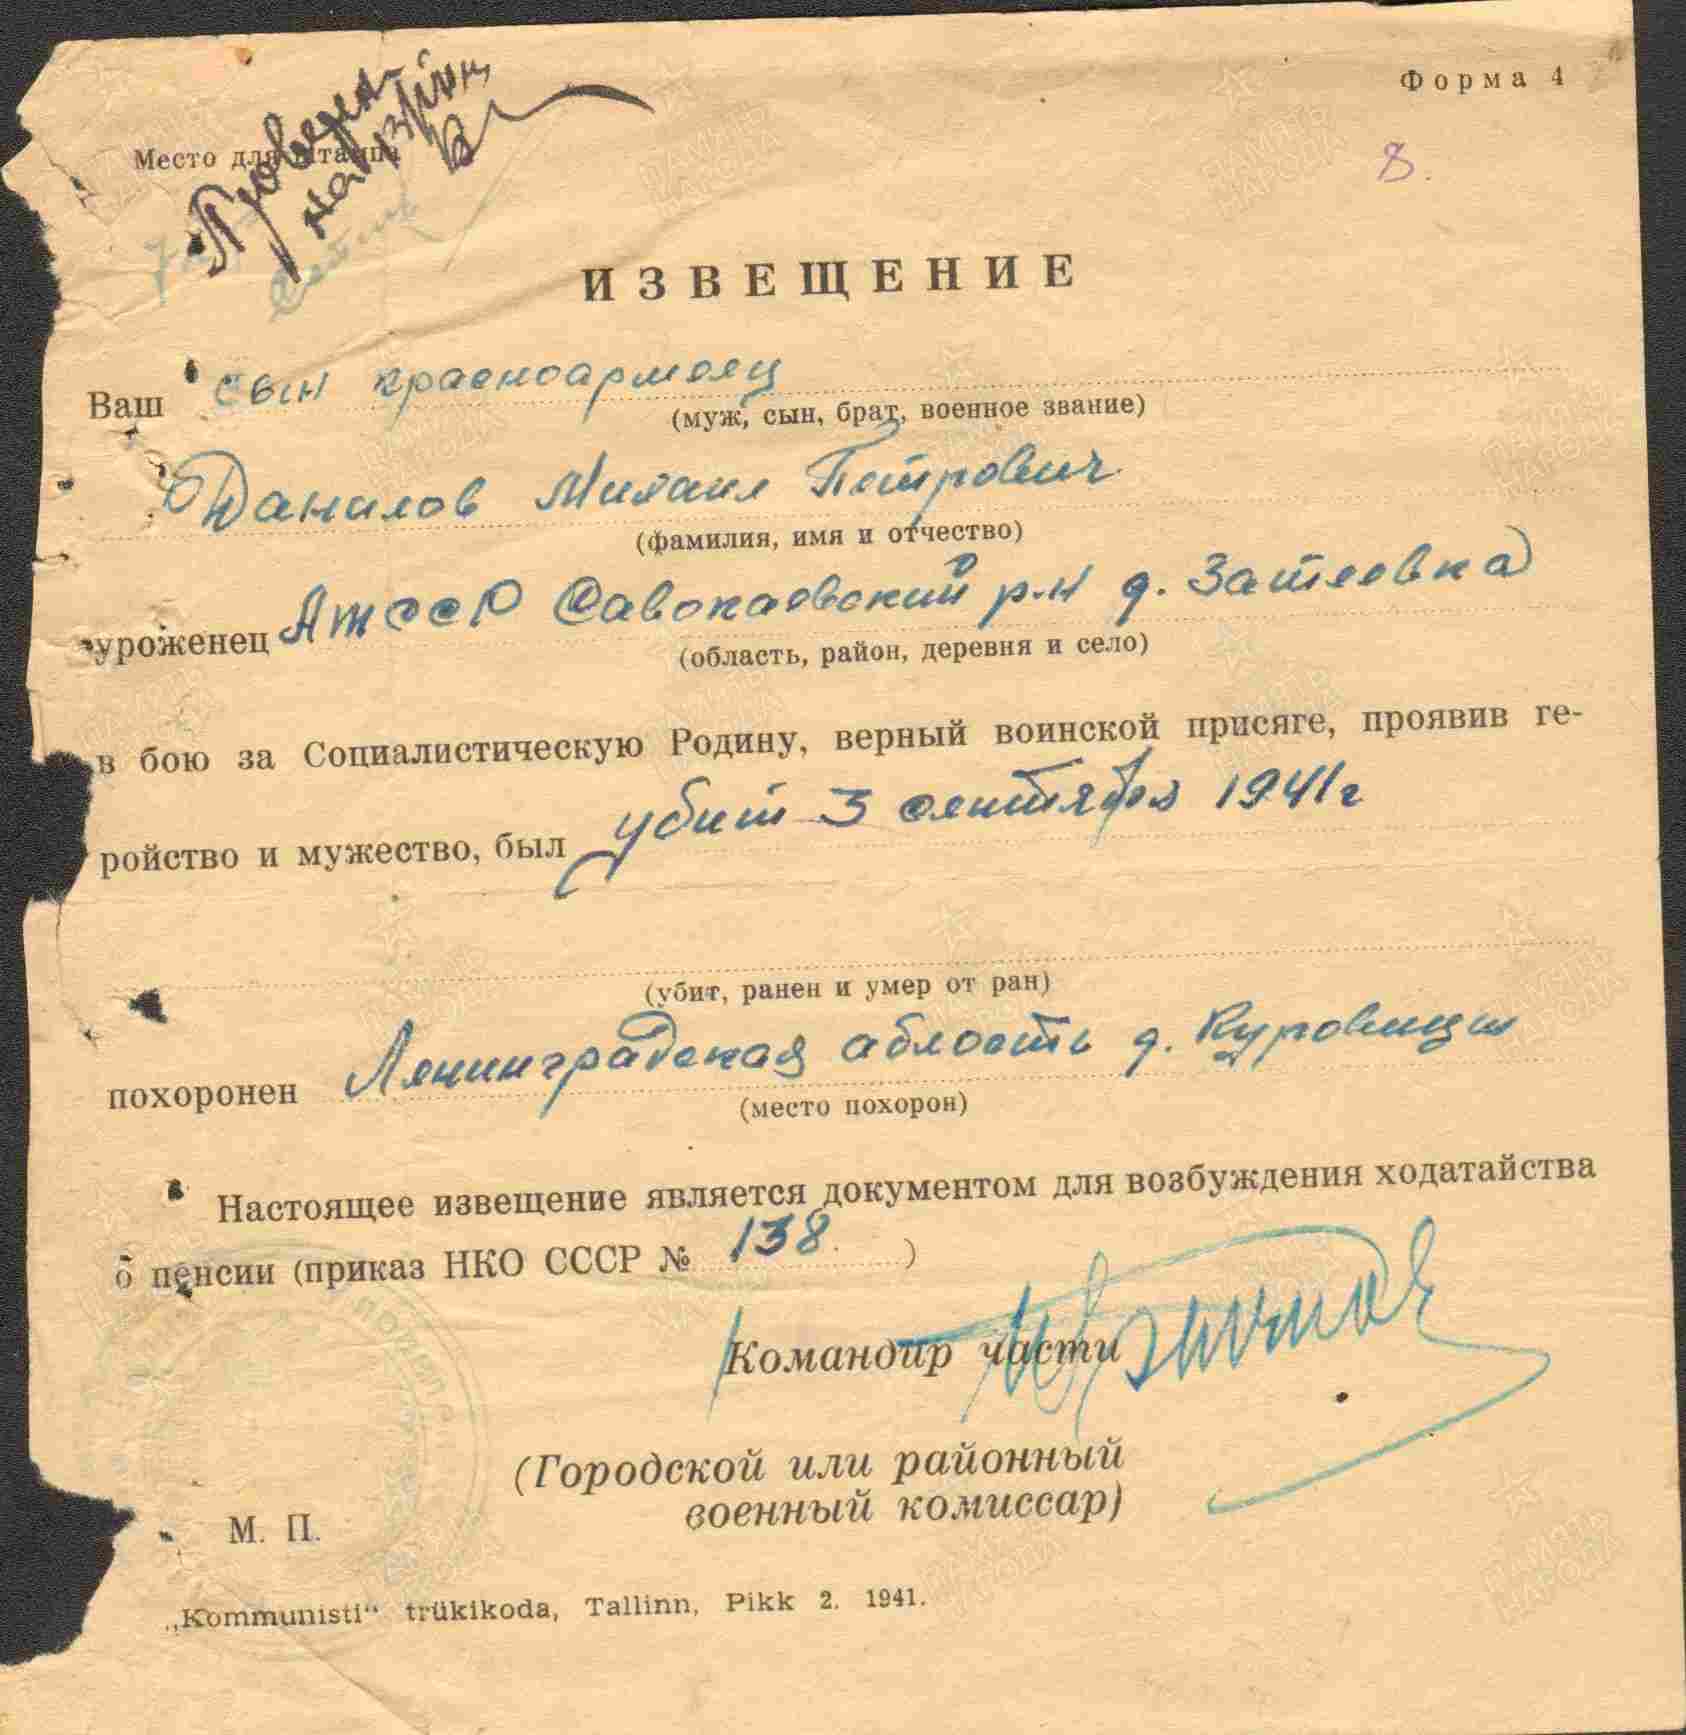 Форма 4
Место для штампа
8.
ИЗВЕЩЕНИЕ
Ваш сын красноармеец
(муж, сын, брат, военное звание)
Данилов Михаил Петрович
(фамилия, имя и отчество)
уроженец АТССР д. Затеевка
(область, район, деревня и село)
в бою за Социалистическую Родину, верный воинской присяге, проявив ге-
ройство и мужество, был убит 3 сентября 1941г
(убит, ранен и умер от ран)
похоронен Ленинградская область д. Куровицы
(место похорон)
Настоящее извещение является документом для возбуждения ходатайства
о пенсии (приказ НКО СССР № 138 )
Командир части
(Городской или районный
военный комиссар)
М. П.
„Kommunisti“ trükikoda, Tallinn, Pikk 2. 1941.